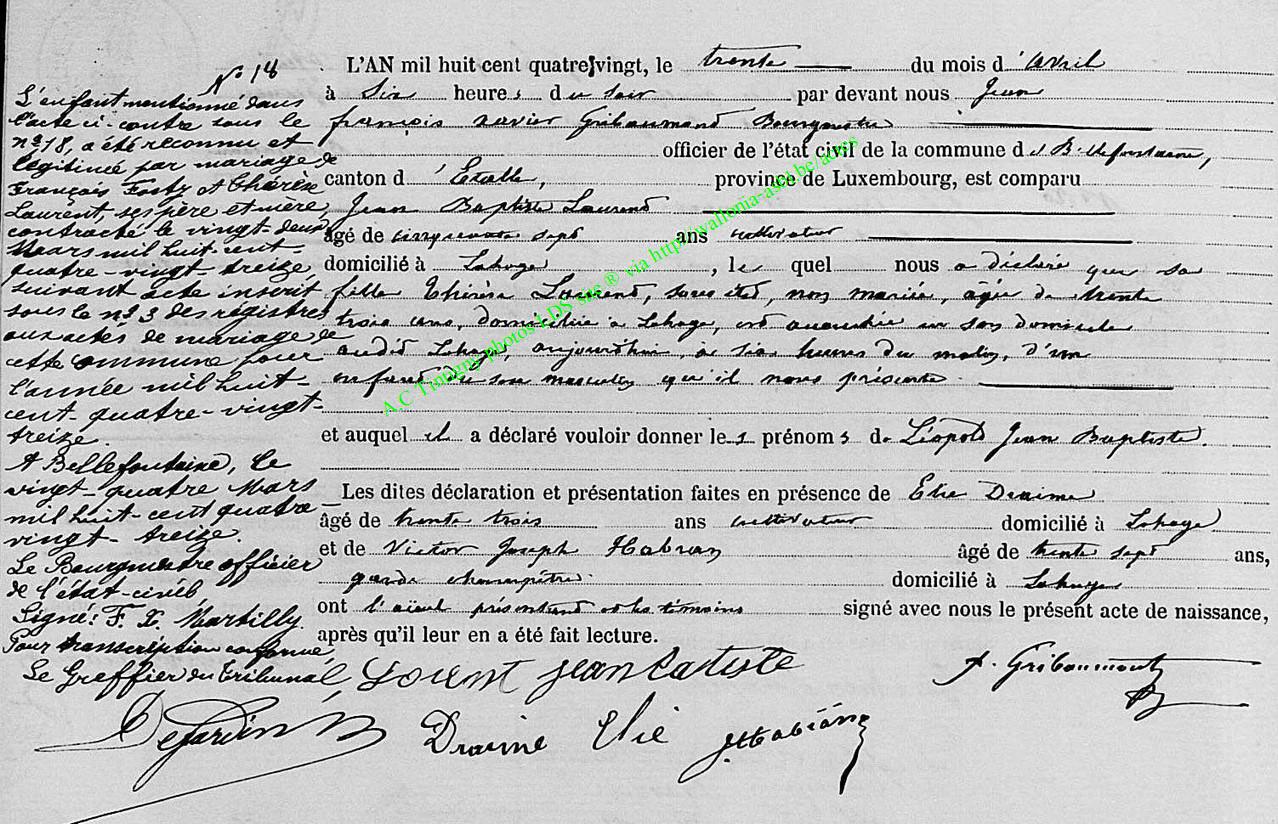 N° 18
L'enfant mentionné dans
l'acte ci-contre sous le
n° 18, a été reconnu et
légitimé par mariage de
François Fosty et Thérèse
Laurent, ses père et mère,
contracté le vingt deux
Mars mil huit cent
quatre-vingt treize,
suivant acte inscrit
sous le n° 3 des registres
aux actes de mariage de
cette commune pour
l'année mil huit-
cent-quatre-vingt-
treize.
A Bellefontaine, le
vingt-quatre Mars
mil huit-cent quatre-
vingt-treize.
Le Bourgmestre officier
de l'état-civil,
Signé: F. X. Martilly.
Pour transcription conforme,
Le Greffier du Tribunal,
Desjardin
L'AN mil huit cent quatre-vingt, le trente du mois d'avril
à Six heures du soir par devant nous Jean
françois xavier Gribaumont Bourgmestre
officier de l'état civil de la commune de Bellefontaine,
canton d'Etalle, province de Luxembourg, est comparu
Jean Baptiste Laurent
âgé de cinquante sept ans cultivateur
domicilié à Lahage, lequel nous a déclaré que sa
fille Thérèse Laurent, sans état, non mariée, âgée de trente
trois ans, domiciliée à Lahage, est accouchée en son domicile
audit Lahage, aujourd'hui, à six heures du matin, d'un
enfant du sexe masculin qu'il nous présente.
et auquel il a déclaré vouloir donner les prénoms de Léopold Jean Baptiste.
Les dites déclaration et présentation faites en présence de Elie Draime
âgé de trente trois ans cultivateur domicilié à Lahage
et de Victor Joseph Habran âgé de trente sept ans,
garde champêtre domicilié à Lahage
ont l'aïeul présentant et les témoins signé avec nous le présent acte de naissance,
après qu'il leur en a été fait lecture.
Lorent jean batiste
f. Gribaumont
Draime Elie
J Habran
A.C Tintigny photos LDS site ® via http://wallonia-asbl.be/actes